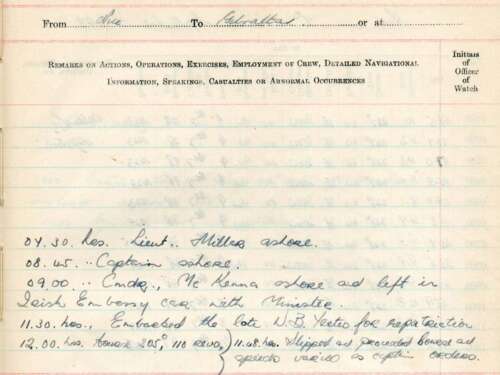 From Nice To Gibraltar or at
REMARKS ON ACTIONS, OPERATIONS, EXERCISES, EMPLOYMENT OF CREW, DETAILED NAVIGATIONAL
INFORMATION, SPEAKINGS, CASUALTIES OR ABNORMAL OCCURRENCES
Initials
of
Officer
of
Watch
07.30. hrs. Lieut., Miller ashore.
08.45. " Captain ashore.
09.00. " Cmdr., Mc Kenna ashore ad left in
Irish Embassy car with Minister.
11.30. hrs., Embarked the late W.B. Yeats for repatriation
12.00. hrs. 205°, 110 revs, } 11.48 hrs. Slipped ad proceeded ad
speeds various as captain orders.